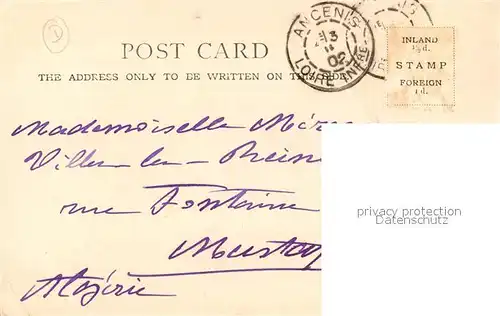 POST CARD
THE ADDRESS ONLY TO BE WRITTEN ON THIS SIDE
ANCENIS
13
02
LOIRE INFRE
INLAND
½d.
STAMP
FOREIGN
1d.
Mademoiselle
Villa
rue Fontaine
Algérie
privacy protection
Datenschutz